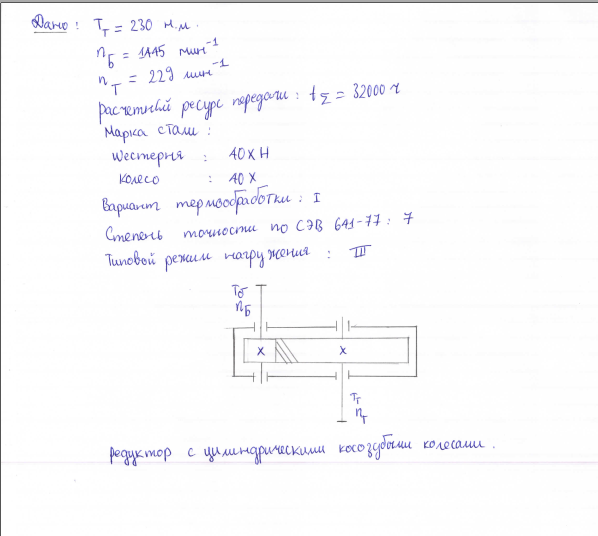 Дано: Tт = 230 н.м.
nБ = 1445 мин⁻¹
nТ = 229 мин⁻¹
Расчетный ресурс передачи: tΣ = 32000 ч
Марка стали:
Шестерня : 40ХН
Колесо : 40Х
Вариант термообработки: I
Степень точности по СЭВ 641-77: 7
Типовой режим нагружения: III
Tб
nБ
x x
Tт
nт
Редуктор с цилиндрическими косозубыми колесами.